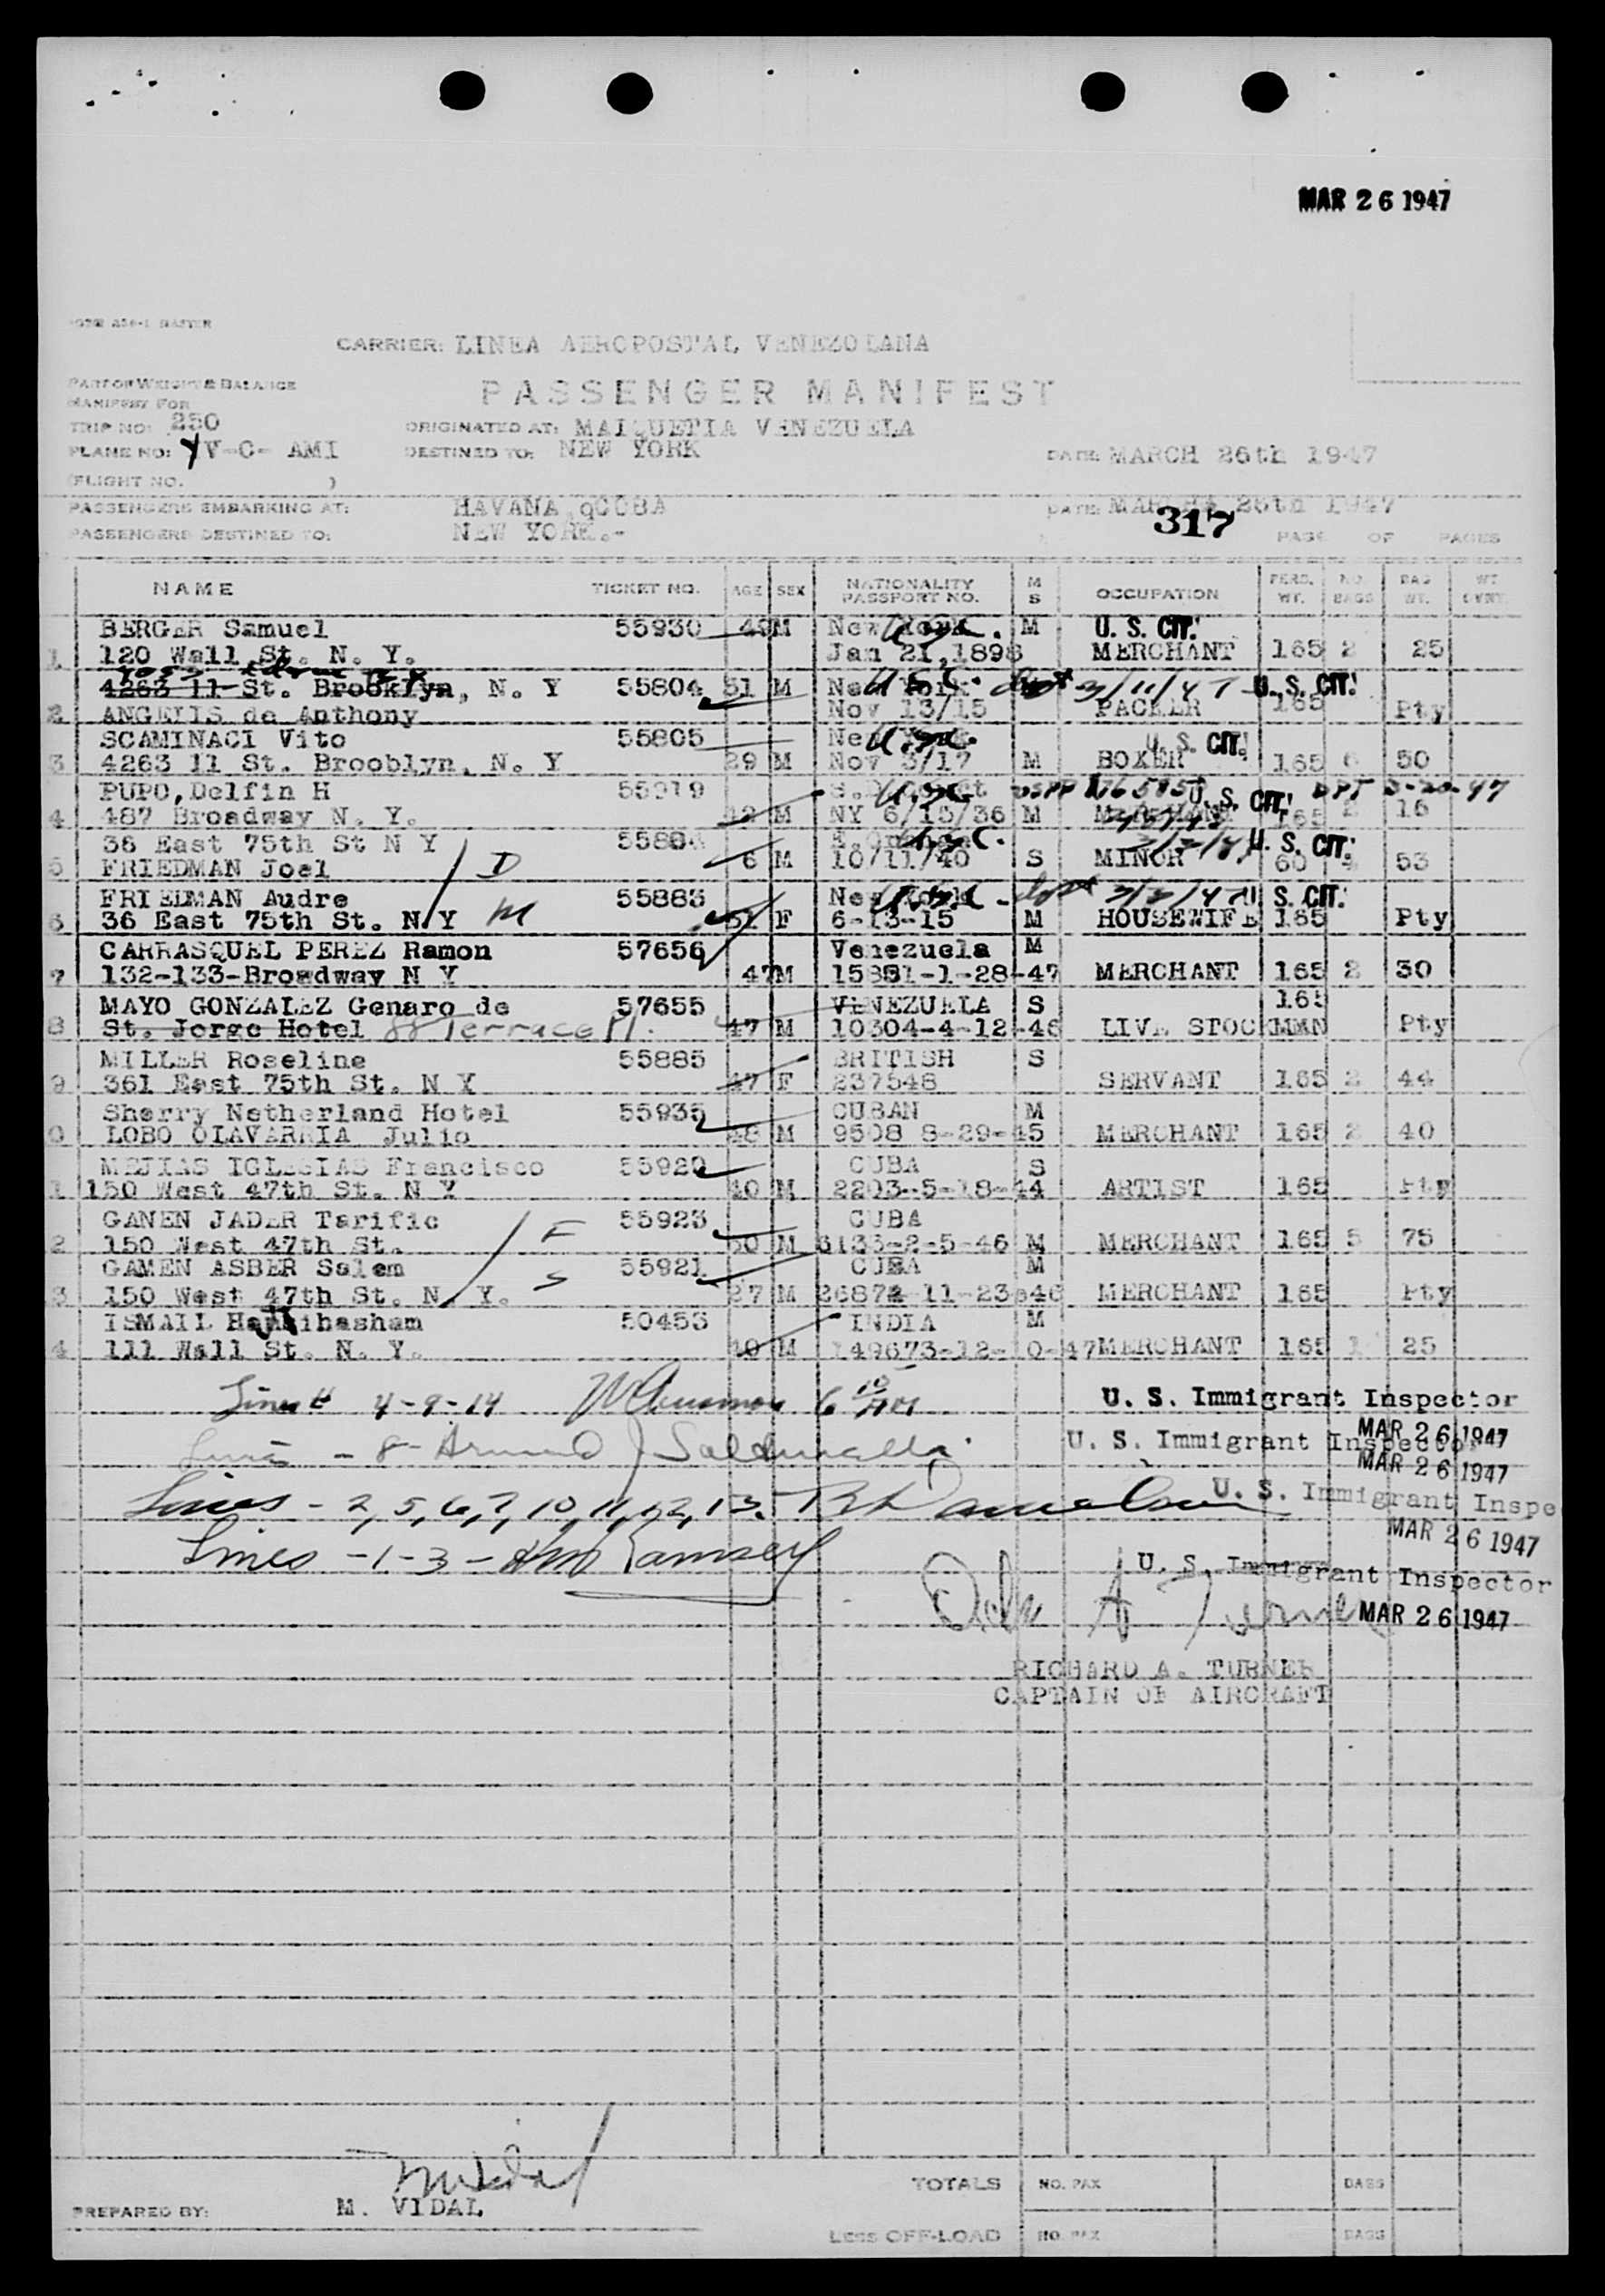 MAR 26 1947
CARRIER: LINEA AEROPOSTAL VENEZOLANA
PART OF WEIGHT & BALANCE
MANIFEST FOR
PASSENGER MANIFEST
TRIP NO: 250
ORIGINATED AT: MAIQUETIA VENEZUELA
PLANE NO: YV-C- AMI
DESTINED TO: NEW YORK
DATE: MARCH 26th 1947
(FLIGHT NO. )
PASSENGERS EMBARKING AT: HAVANA, CUBA
DATE: MARCH 26th 1947
PASSENGERS DESTINED TO: NEW YORK.-
317
PAGE OF PAGES
NAME TICKET NO. AGE SEX NATIONALITY PASSPORT NO. M S OCCUPATION PERS. WT. NO. BAGS BAG WT. WT
BERGER Samuel 55930 49 M New York U.S.C. M U. S. CIT.
1 120 Wall St. N. Y. Jan 21, 1898 MERCHANT 165 2 25
4263 11 St. Brooklyn, N. Y 55804 31 M New York U.S.C. 3/11/47 U. S. CIT.
2 ANGELIS de Anthony Nov 13/15 PACKER 165 Pty
SCAMINACI Vito 55805 New York U.S.C. U. S. CIT.
3 4263 11 St. Brooblyn, N. Y 29 M Nov 3/17 M BOXER 165 6 50
PUPO, Delfin H 55919 U.S.C. USPP U. S. CIT. DPT 3-20-47
4 487 Broadway N. Y. M NY 6/15/36 M 165 2 16
36 East 75th St N Y 55884 U.S.C. U. S. CIT.
5 FRIEDMAN Joel D 6 M 10/11/40 S MINOR 60 53
FRIEDMAN Audre 55883 New York U.S.C. 3/3/47 U. S. CIT.
6 36 East 75th St. N Y M 31 F 6-13-15 M HOUSEWIFE 165 Pty
CARRASQUEL PEREZ Ramon 57656 Venezuela M
7 132-133-Broadway N Y 47 M 15881-1-28-47 MERCHANT 165 2 30
MAYO GONZALEZ Genaro de 57655 VENEZUELA S 165
8 St. Jorge Hotel 88 Terrace Pl. 47 M 10304-4-12-46 LIVE STOCKMMN Pty
MILLER Roseline 55885 BRITISH S
9 361 East 75th St. N Y 47 F 237548 SERVANT 165 2 44
Sherry Netherland Hotel 55935 CUBAN M
0 LOBO OLAVARRIA Julio 48 M 9508 8-29-45 MERCHANT 165 2 40
MEJIAS IGLESIAS Francisco 55920 CUBA S
1 150 West 47th St. N Y 40 M 2203-5-18-44 ARTIST 165 Pty
GANEN JADER Tarific F 55923 CUBA
2 150 West 47th St. 50 M 6133-2-5-46 M MERCHANT 165 5 75
GAMEN ASBER Salem S 55921 CUBA M
3 150 West 47th St. N. Y. 27 M 26872 11-23-46 MERCHANT 165 Pty
ISMAIL 50453 INDIA M
4 111 Wall St. N. Y. M 149673-12- 0-47 MERCHANT 165 1 25
Lines 4-9-14 6 10 AM U. S. Immigrant Inspector
MAR 26 1947
Lines - 8 - U. S. Immigrant Inspector
MAR 26 1947
Lines - 2, 5, 6, 7, 10, 11, 12, 13. U. S. Immigrant Inspe
MAR 26 1947
Lines - 1 - 3 - Ramsey U. S. Immigrant Inspector
MAR 26 1947
RICHARD A. TURNER
CAPTAIN OF AIRCRAFT
TOTALS NO. PAX BAGS
PREPARED BY: M. VIDAL
LESS OFF-LOAD NO. PAX BAGS